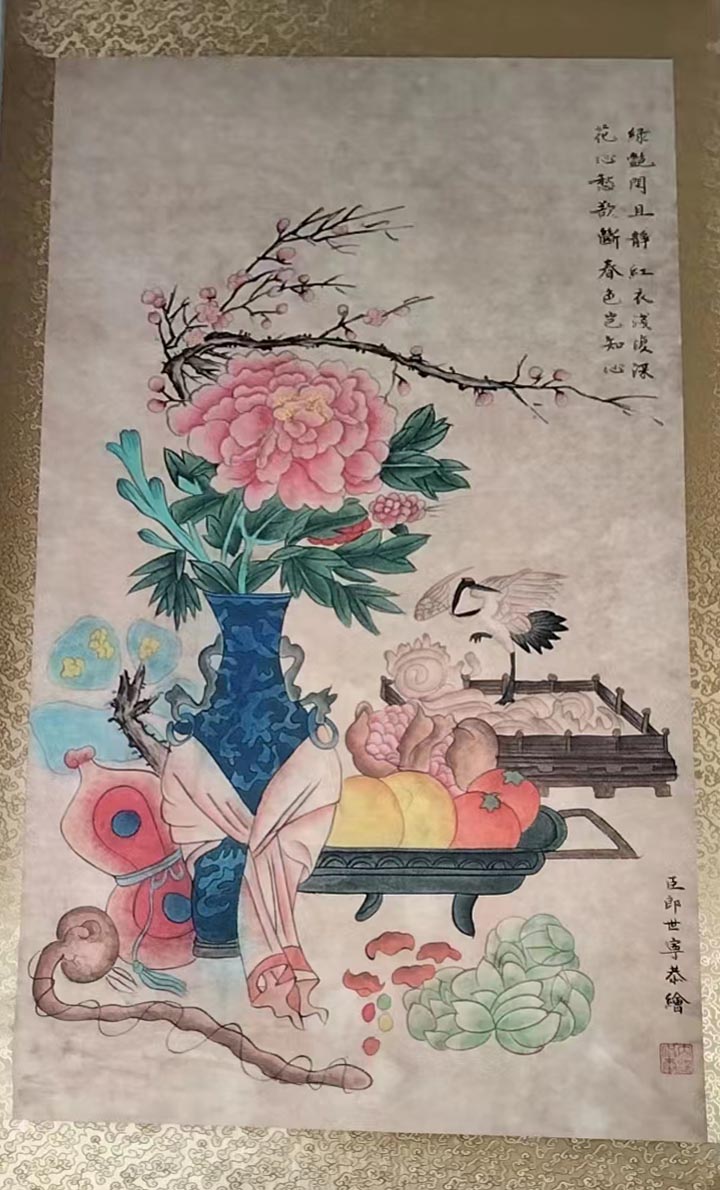 綠艷閒且靜紅衣淺復深
花心愁欲斷春色岂知心
臣郎世寧恭繪